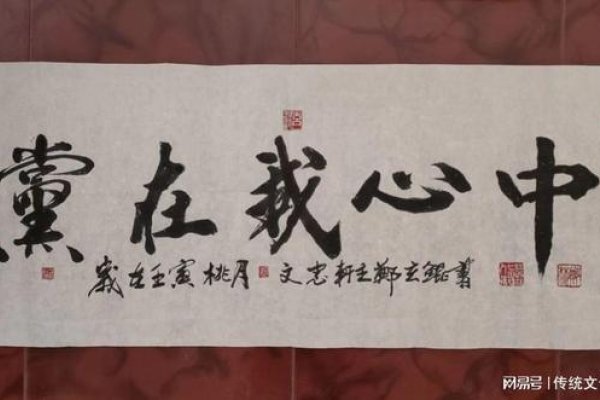 黨在我心中
歲在壬寅桃月 文忠軒主鄭書
网易号 | 传统文